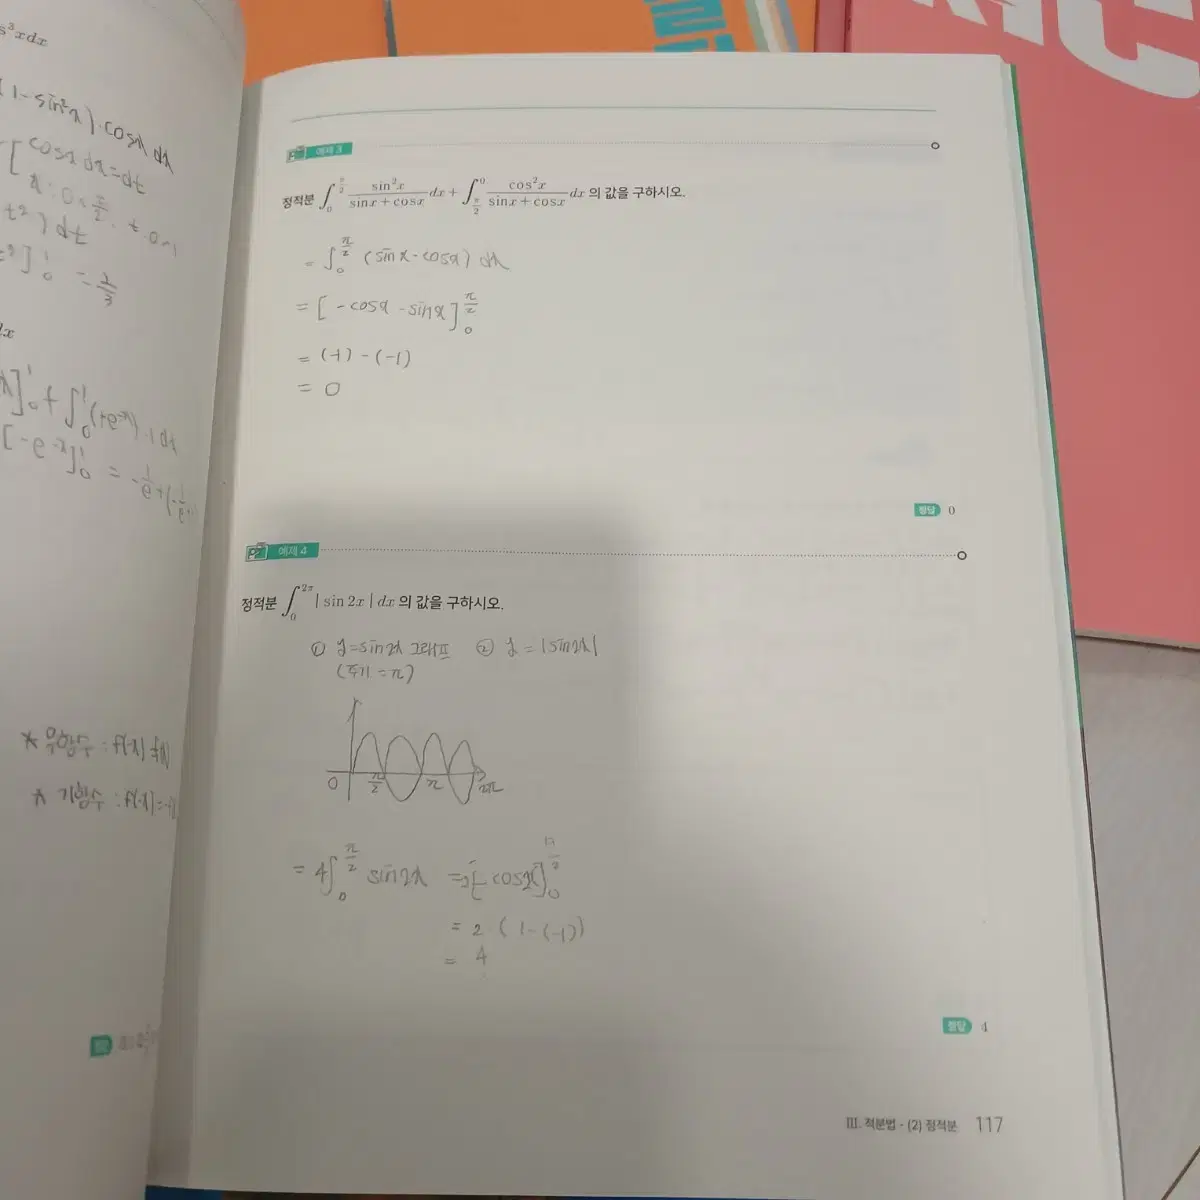 s³xdx
(1-sin²x)·cosx dx
cosx dx=dt
x: 0~π/2, t: 0~1
t²)dt
]₀¹ = 2/3
dx
]₀¹ + ∫₀¹(+e⁻ˣ)·1dx
[-e⁻ˣ]₀¹ = -1/e+(-1/e+
* 우함수 : f(-x)=f(x)
* 기함수 : f(-x)=-f(
예제 3
정적분 ∫₀^{π/2} sin²x/(sinx+cosx) dx + ∫_{π/2}^0 cos²x/(sinx+cosx) dx 의 값을 구하시오.
= ∫₀^{π/2} (sinx-cosx) dx
= [-cosx -sinx]₀^{π/2}
= (-1) - (-1)
= 0
정답 0
예제 4
정적분 ∫₀^{2π} |sin2x|dx 의 값을 구하시오.
① y=sin2x 그래프 ② y=|sin2x|
(주기=π)
0 π/2 π 2π
= 4∫₀^{π/2} sin2x =2[-cos2x]₀^{π/2}
= 2 (1-(-1))
= 4
정답 4
Ⅲ. 적분법 - (2) 정적분 117